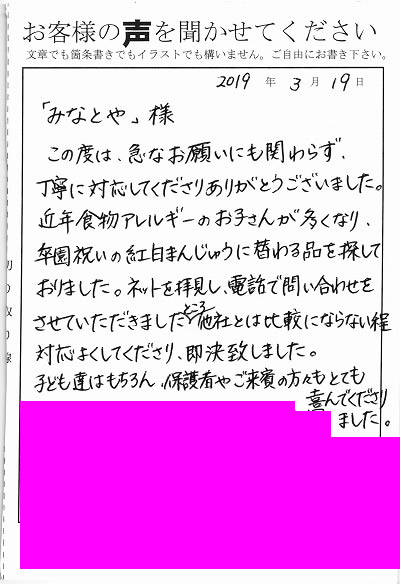 お客様の声を聞かせてください
文章でも箇条書きでもイラストでも構いません。ご自由にお書き下さい。
2019 年 3 月 19 日
「みなとや」様
この度は、急なお願いにも関わらず、
丁寧に対応してくださりありがとうございました。
近年食物アレルギーのお子さんが多くなり、
卒園祝いの紅白まんじゅうに替わる品を探して
おりました。ネットを拝見し、電話で問い合わせを
させていただきましたところ他社とは比較にならない程
対応よくしてくださり、即決致しました。
子ども達はもちろん、保護者やご来賓の方々もとても
喜んでくださり
ました。
切り取り線